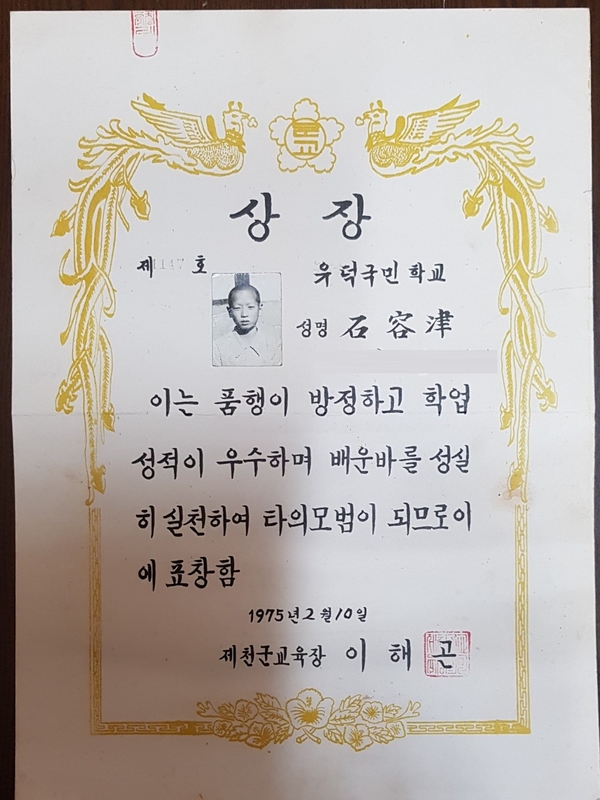 국교
상 장
제 호
우덕국민학교
성명 石容津
이는 품행이 방정하고 학업
성적이 우수하며 배운바를 성실
히 실천하여 타의모범이 되므로이
에 표창함
1975년 2월 10일
제천군교육장 이 해 곤